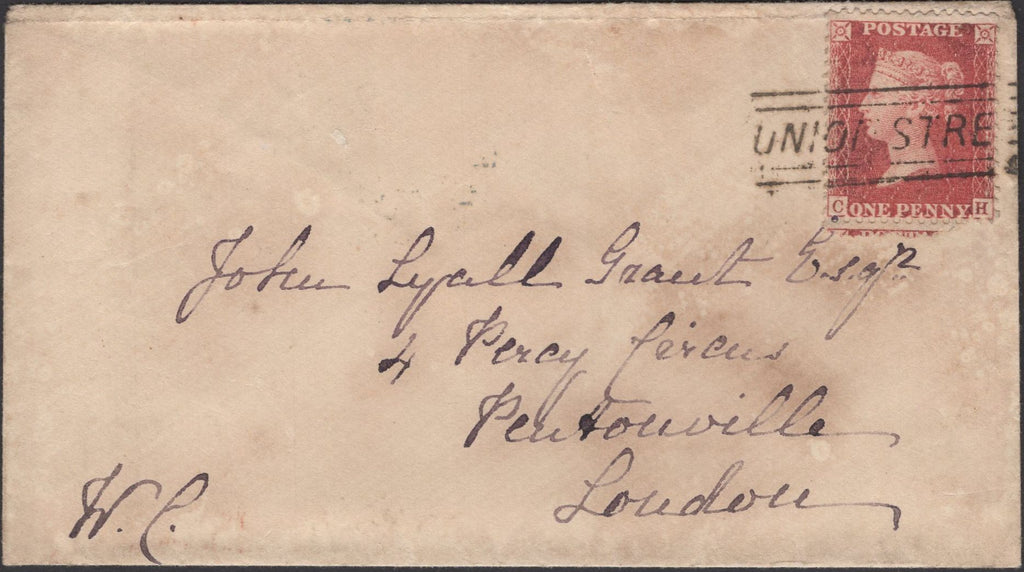 POSTAGE
UNION STRE
C ONE PENNY H
John Lyall Grant Esqr.
4 Percy Circus
Pentonville
London
W. C.